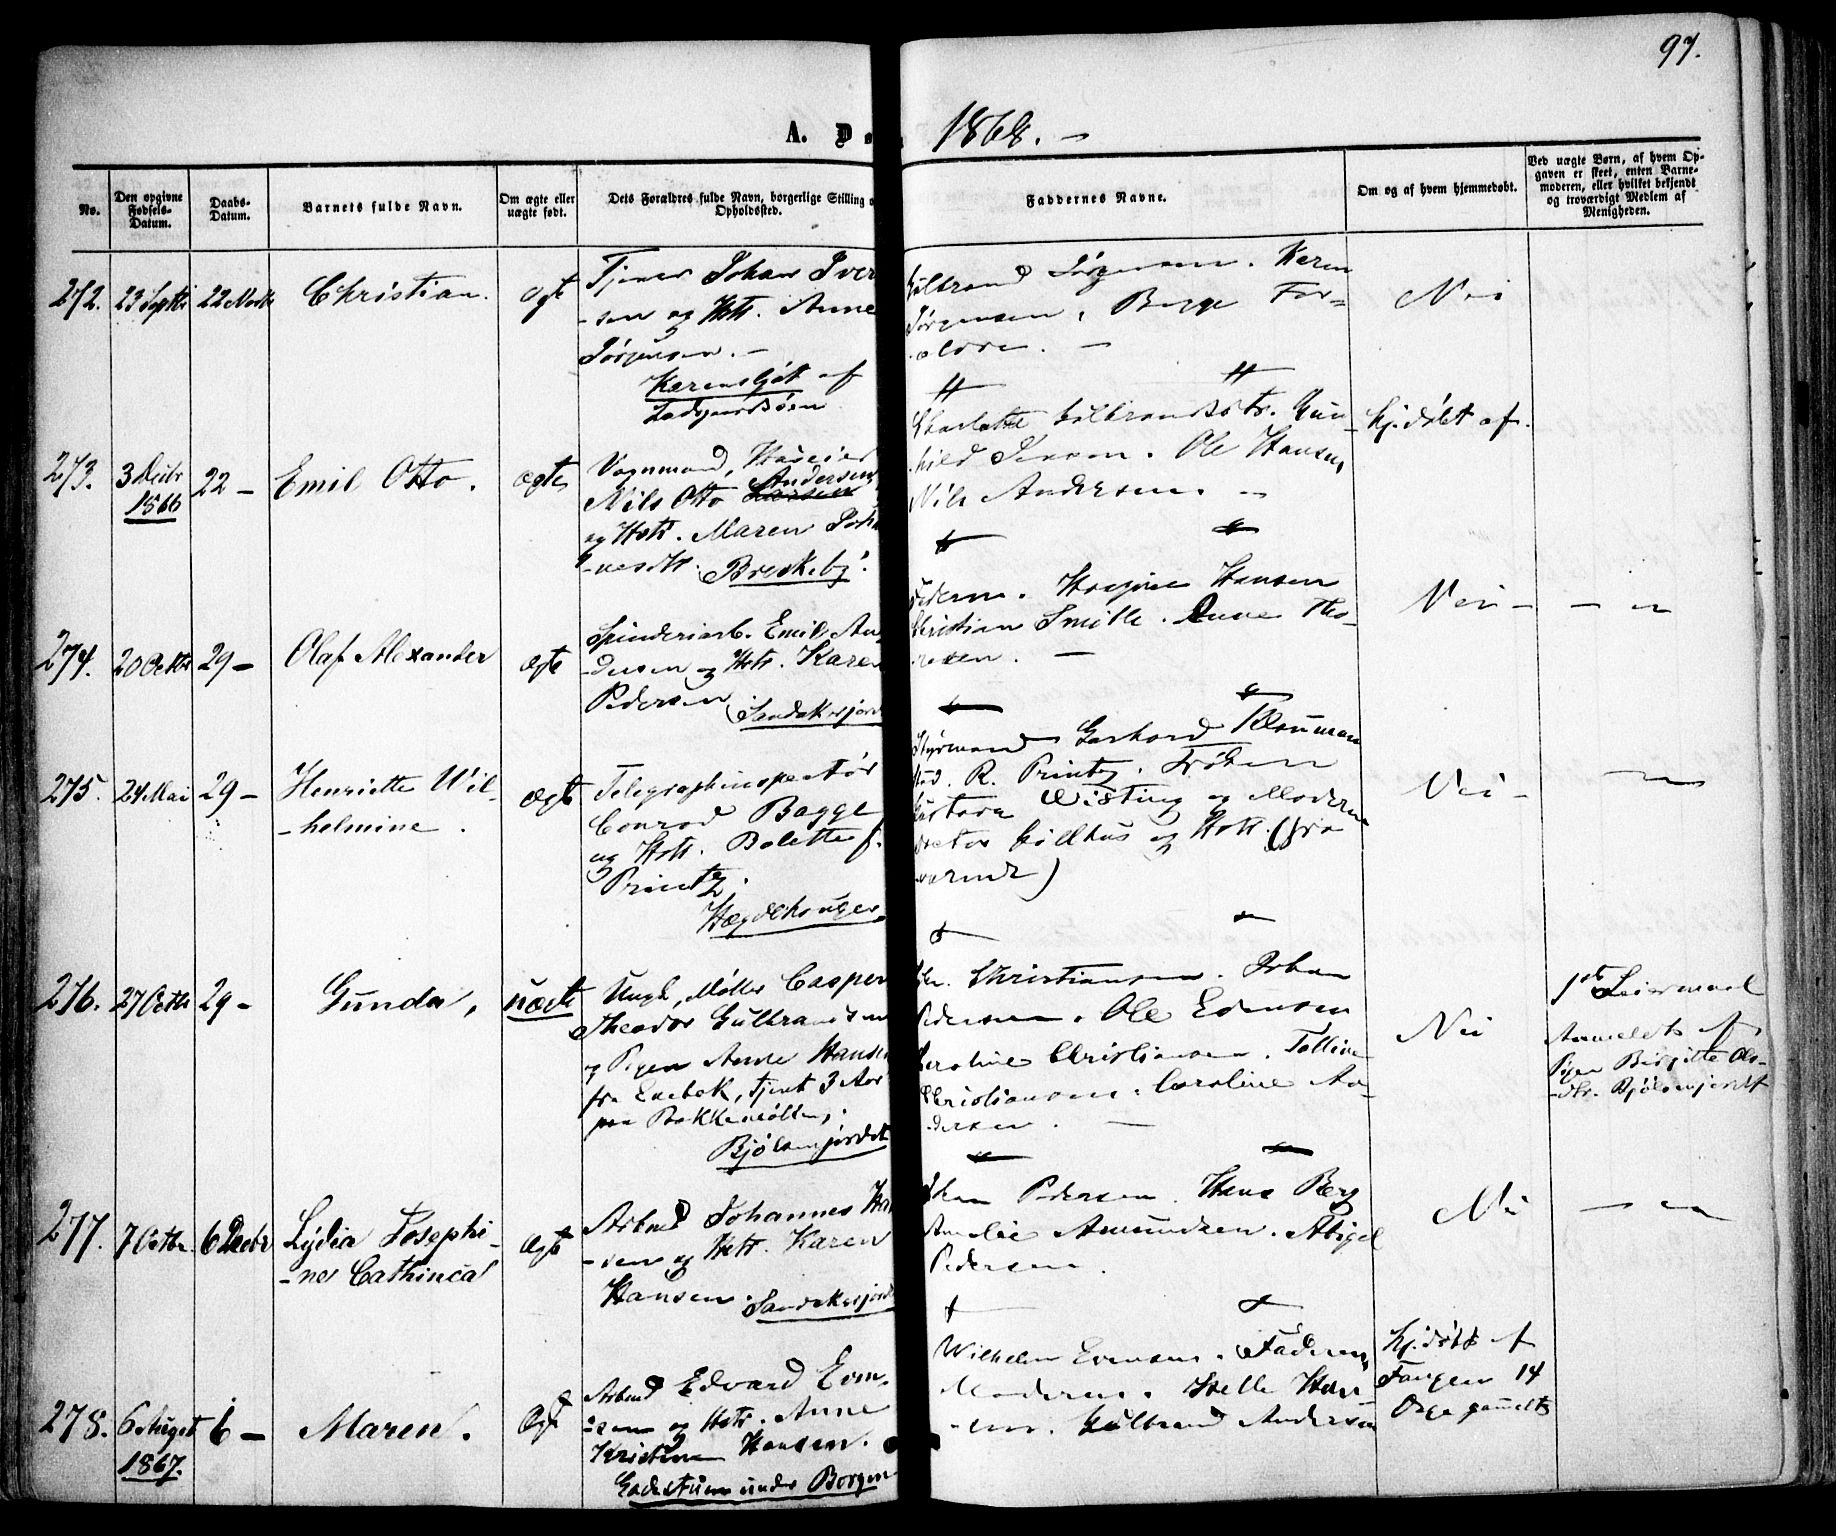 97.
A. Dø 1868. –
No.
Den opgivne Fødsels-Datum.
Daabs-Datum.
Barnets fulde Navn.
Om ægte eller uægte født.
Dets Forældres fulde Navn, borgerlige Stilling o
Opholdssted.
Faddernes Navne.
Om og af hvem hjemmedøbt.
Ved uægte Børn, af hvem Op-
gaven er skeet, enten Barne-
moderen, eller hvilket bekjendt
og troværdigt Medlem af
Menigheden.
272. 23 Septbr 22 Novbr Christian. Ægte
Tjener Johan Iver
-sen og Hstr. Anne
Jørgensen. –
af
Jørgensen. Karen
Jørgensen, Børge For=
ældre. –
Nei
273. 3 Decbr 1866 22 – Emil Otto. ægte
Vognmand, Huseier
Nils Otto Andersen
og Hstr. Maren Joha
Breskeby.
Gulbrandsdtr. Gun
hild Ole Hansen
Nils Andersen. –
Hj.døbt af.
274. 20 Octbr 29 – Olaf Alexander ægte
Spinderiarb. Emil An
dersen og Hstr. Karen
Pedersen
Sandakerjord
Faderen. Hansen
Christian Smille. Anne Tho-
resen. –
Nei – – " –
275. 24 Mai 29 – Henriette Wil-
-helmine. ægte
Telegraphinspectør
Conrad Bagge
og Hstr. Bolette f.
Printz.
Hægdehougen
Styrmand Gerhard
Stud. R. Printz. Frøken
Gustava Wisting og Moderen
og Hstr. (fra
værende)
Nei – – " –
276. 27 Octbr 29 – Gunda, uægte
Ungk. Møller Casper
Theodor Gulbrandsen
og Pigen Anne Hansen
fra Enebak, tjent 3 Aar
paa Bakkemøllen,
Bjølsenjordet
Christiansen. Johan
Pedersen. Ole Evensen
Karoline Christiansen. Talline
Christiansen. Caroline An-
dersen. –
Nei
1ste Leiermaal
Anmeldt af
Pigen Birgitte Ols-
-dtr. Bjølsenjordet
277. 7 Octbr 6 Decbr Lydia Josephi-
-ne Cathinca ægte
Arbmd Johannes Ha
-sen og Hstr. Karen
Hansen. Sandakerjord
Johan Pedersen. Hans Berg
Amalie Amundsen. Abigel
Pedersen.
Nei – " –
278. 6 August 1867. 6 – Maren. Ægte
Arbmd Edvard Even
-sen og Hstr. Anne
Kristine Hansen.
under Borgen
Wilhelm Evensen. Faderen,
Moderen. Helle Han
-sen. Gulbrand Andersen
Hj.døbt af
14
Dage gammelt